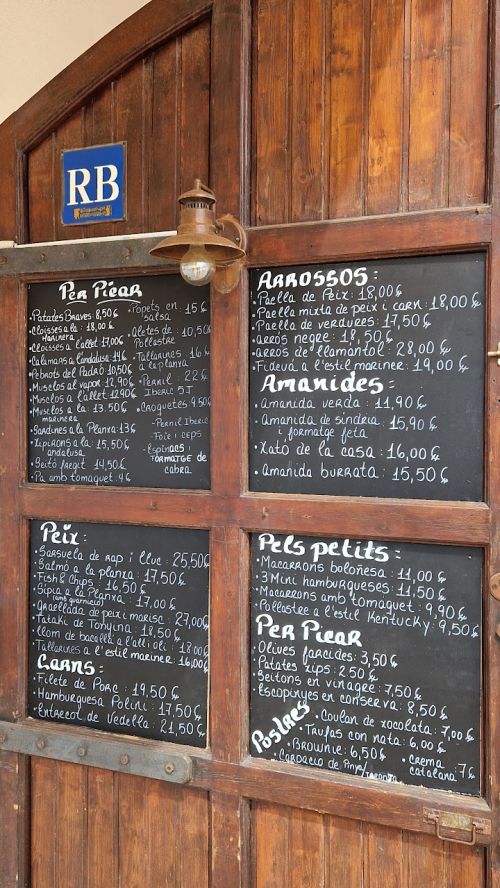 RB
Per Picar
Patates Braves: 8,50€
Cloïsses a la : 18,00€
Marinera
Cloisses a l'allet 17,00€
Calamars a l'andalusa 14€
Pebrots del Padró 10,50€
Musclos al vapor 12,90€
Musclos a l'allet 12,90€
Musclos a la : 13.50€
marinera
Sardines a la Planxa: 13€
Xipirons a la: 15,50€
andalusa
Seitó fregit 14,50€
Pa amb tomaquet: 4€
Popets en : 15€
salsa
Aletes de : 10,50€
Pollastre
Tallarines 16€
a la planxa
Pernil : 22€
Iberic 5J
Croquetes 9.50€
- Pernil Iberic
- Foie i ceps
- Espinacs i
Formatge de
cabra
Arrossos :
Paella de Peix: 18,00€
Paella mixta de peix i carn : 18,00€
Paella de verdures: 17,50€
Arròs negre: 18,50€
Arròs de llamàntol : 28,00€
Fideuà a l'estil mariner : 19,00€
Amanides :
Amanida verda : 11,90€
Amanida de sindria: 15,90€
formatge feta
Xató de la casa : 16,00€
Amanida burrata : 15,50€
Peix :
Sarsuela de rap i lluç : 25,50€
Salmó a la planxa : 17,50€
Fish & Chips : 16,50€
Sípia a la Planxa : 17,00€
(amb guarnició)
Graellada de peix i marisc : 27,00€
Tataki de Tonyina : 18,50€
Llom de bacallà a l'all i oli : 18,00€
Tallarines a l'estil mariner : 16,00€
Carns :
Filete de Porc : 19,50€
Hamburguesa Polini : 17,50€
Entrecot de Vedella : 21,50€
Pels petits :
Macarrons boloñesa : 11,00€
3 Mini hamburgueses : 11,50€
Macarrons amb tomaquet : 9,90€
Pollastre a l'estil Kentucky: 9,50€
Per Picar
Olives farcides: 3,50€
Patates xips: 2.50€
Seitons en vinagre: 7,50€
Escopinyes en conserva : 8,50€
Postres
Coulan de xocolata : 7,00€
Trufas con nata : 6,00€
Brownie : 6,50€
Crema 7€
catalana
Carpaccio de Pinya/
taronja